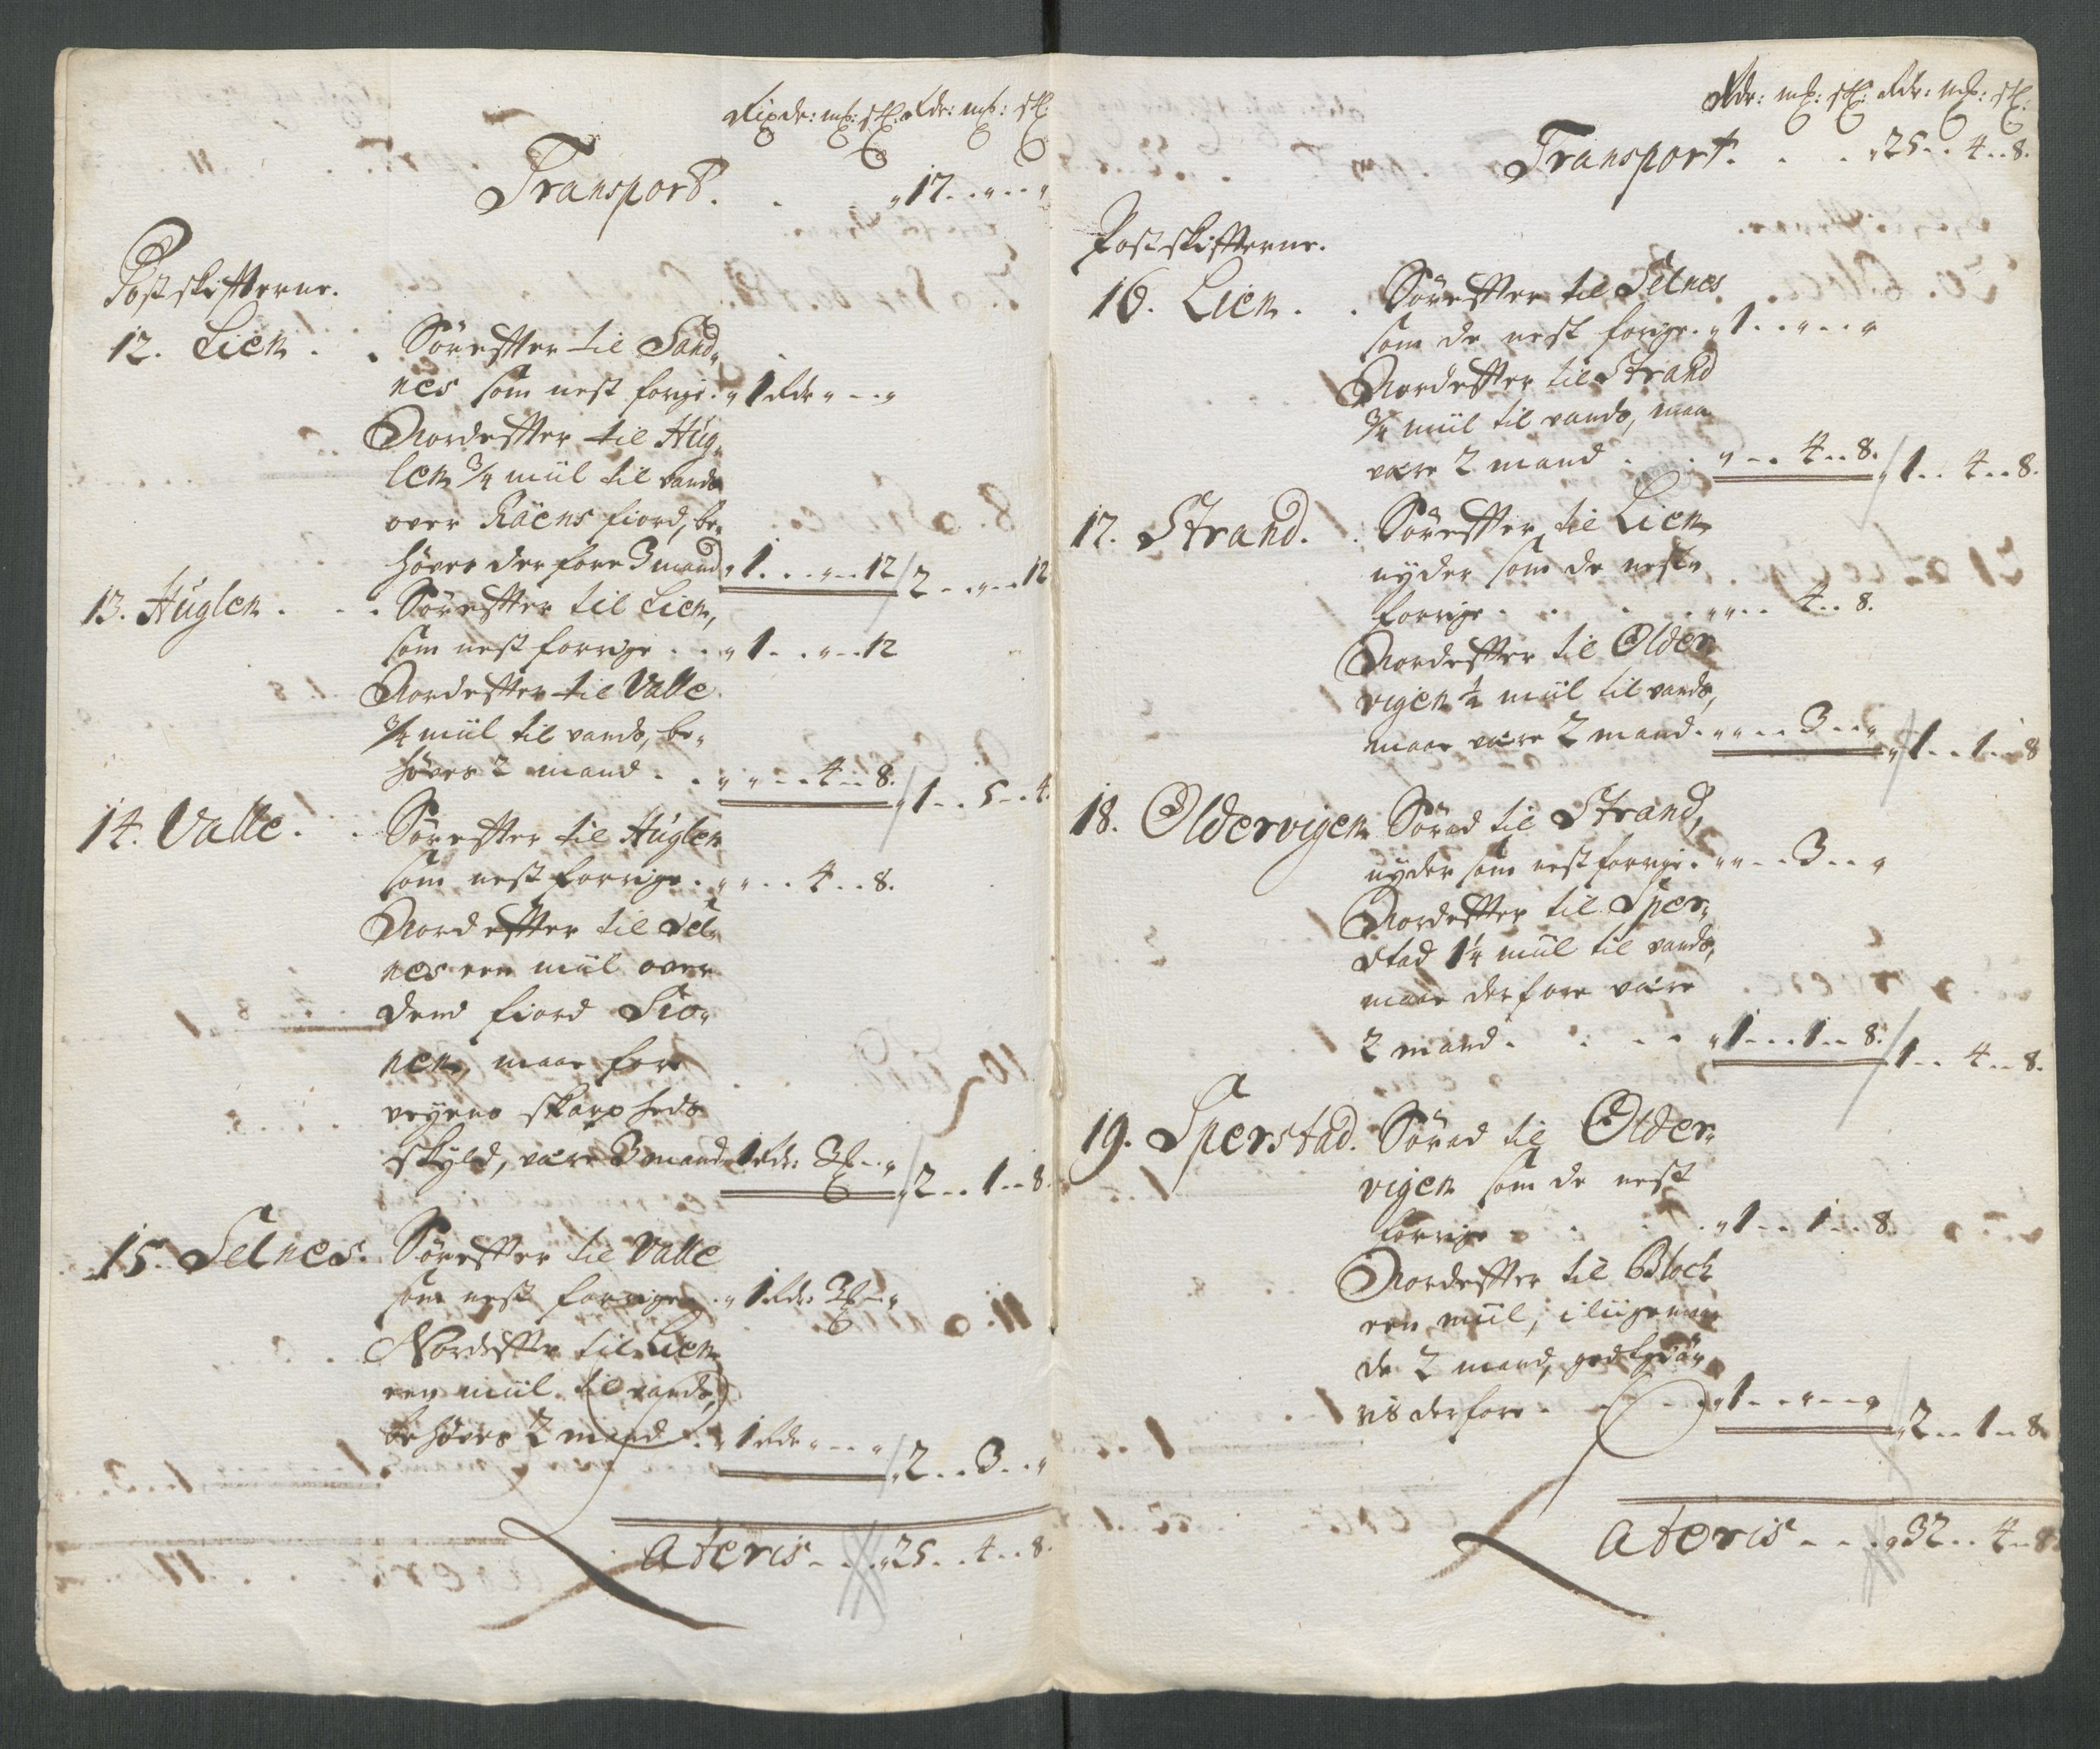 Rixdr: mk: sk: Rdr: mk: sk:
Transport. . . „17. . „ . . „
Postskifterne.
12. Lien . . Sørefter til Sand„
nes som nest forge. „ 1 Rdr „ - . . „
Nordefter til Hug„
len 3/4 miil til vands
over Räens fiord, be„
høves derfore 3 mand „ 1. . . „ - . 12 / 2 - . „ - . 12
13. Huglen . . . Sørefter til Lien,
som nest forrige . . „ 1 - . . „ - . 12
Nordefter til Valle
3/4 miil til vands, be„
høves 2 mand . . „ „ - . 4 - . 8. / „ 1 - . . 5 - . 4.
14. Valle . . Sørefter til Huglen
som nest forrige . „ „ . . 4 . . 8.
Nordefter til Sel„
nes een miil over
dend fiord Sio„
nen, maae for
veyens skarpheds
skyld, være 3 mand 1 Rdr 3 mk - . „ / „ 2 - . 1 - . 8.
15. Selnes. Sørefter til Valle
som nest forrige . „ 1 Rdr: 3 mk - . „
Nordefter til Lien
een miil til vands,
behøves 2 mand . . „ 1 Rdr „ - . . „ / „ 2 . . 3 . . „
Lateris - . . „ 25 . . 4 . . 8.
Rdr: mk: sk: Rdr: mk: sk:
Transport. . . „ 25 . . 4 . . 8.
Postskifterne.
16. Lien . . Sørefter til Selnes
som de nest forge. „ 1 . . „ - . . „
Nordefter til Strand
3/4 miil til vands, maa
være 2 mand . . . „ - . . 4 . . 8. / „ 1 . . 4 . . 8.
17. Strand. . Sørefter til Lien
nyder som de neste
forrige . . . . „ „ . . 4 . . 8.
Nordefter til Older„
vigen 1/2 miil til vands,
maae være 2 mand. „ „ . . 3 - . „ / „ 1 - . 1 - . 8
18. Oldervigen Søred til Strand,
nyder som nest forrige. „ „ - . 3 - . . „
Nordefter til Sper„
stad 1 1/4 miil til vands,
maae derfore være
2 mand . . . . „ 1 . . . 1 - . 8: / 1 - . 4 - . 8.
19. Sperstad. Søred til Older„
vigen som de nest
forrige . . . . „ 1 - . 1 . . 8.
Nordefter til Block
een miil, i liige maa
de 2 mand, godtgiø„
ris derfore - . . . „ 1 - . „ - . „ / „ 2 - . 1 - . 8.
Lateris - . . „ 32 . . 4 . . 8